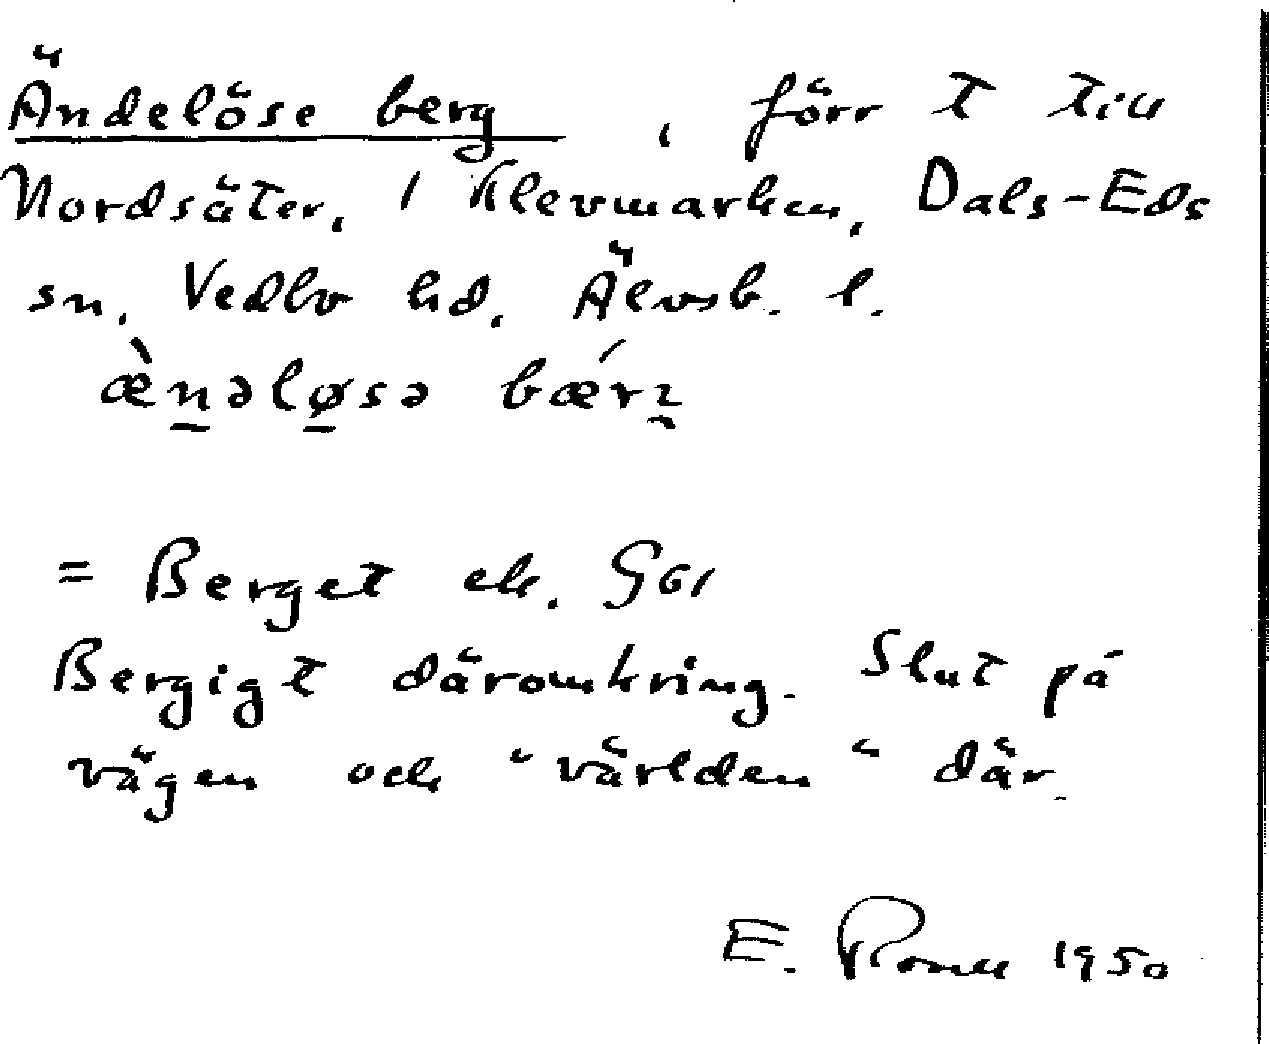 Ändelöse berg, förr t till
Nordsäter, 1 Klevmarken, Dals-Eds
sn, Vedbo hd, Älvsb. l.
æ̀n̠əlø̠sə bǽrʐ
= Berget ek. G61
Bergigt däromkring. Slut på
vägen och "världen" där.
E. 1950